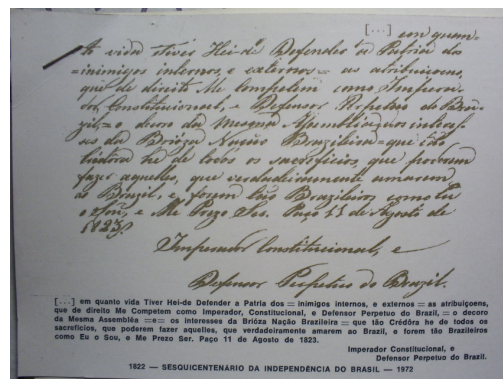 [...] em quan-
to vida Tiver Hei-de Defender a Patria dos
=inimigos internos, e externos= as atribuiçoens,
que de direito Me Competem como Impera-
dor, Constitucional, e Defensor Perpetuo do Bra-
zil,=o decoro da Mesma Assembléa=e os interes-
ses da Brióza Nação Brazileira=que tão
Crédora he de todos os sacrificios, que poderem
fazer aquelles, que verdadeiramente amarem
ao Brazil, e forem tão Brazileiros como Eu
o Sou, e Me Prezo Ser. Paço 11 de Agosto de
1823.
Imperador Constitucional, e
Defensor Perpetuo do Brazil.
[...] em quanto vida Tiver Hei-de Defender a Patria dos = inimigos internos, e externos = as atribuiçoens,
que de direito Me Competem como Imperador, Constitucional, e Defensor Perpetuo do Brazil, = o decoro
da Mesma Assembléa =e= os interesses da Brióza Nação Brazileira = que tão Crédôra he de todos os
sacreficios, que poderem fazer aquelles, que verdadoiramente amarem ao Brazil, e forem tão Brazileiros
como Eu o Sou, e Me Prezo Ser. Paço 11 de Agosto de 1823.
Imperador Constitucional, e
Defensor Perpetuo do Brazil.
1822 — SESQUICENTENÁRIO DA INDEPENDÊNCIA DO BRASIL — 1972